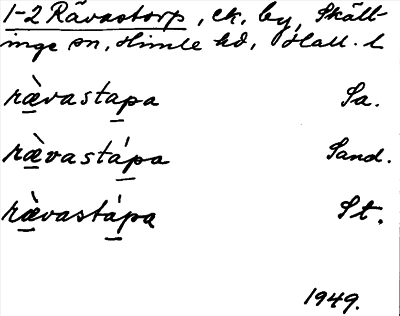 1-2 Rävastorp, ek. by, Skäll-
inge sn, Himle hd, Hall. l
rævastapa Sa.
rǽvastápa Sand.
rævastápa St.
1949.